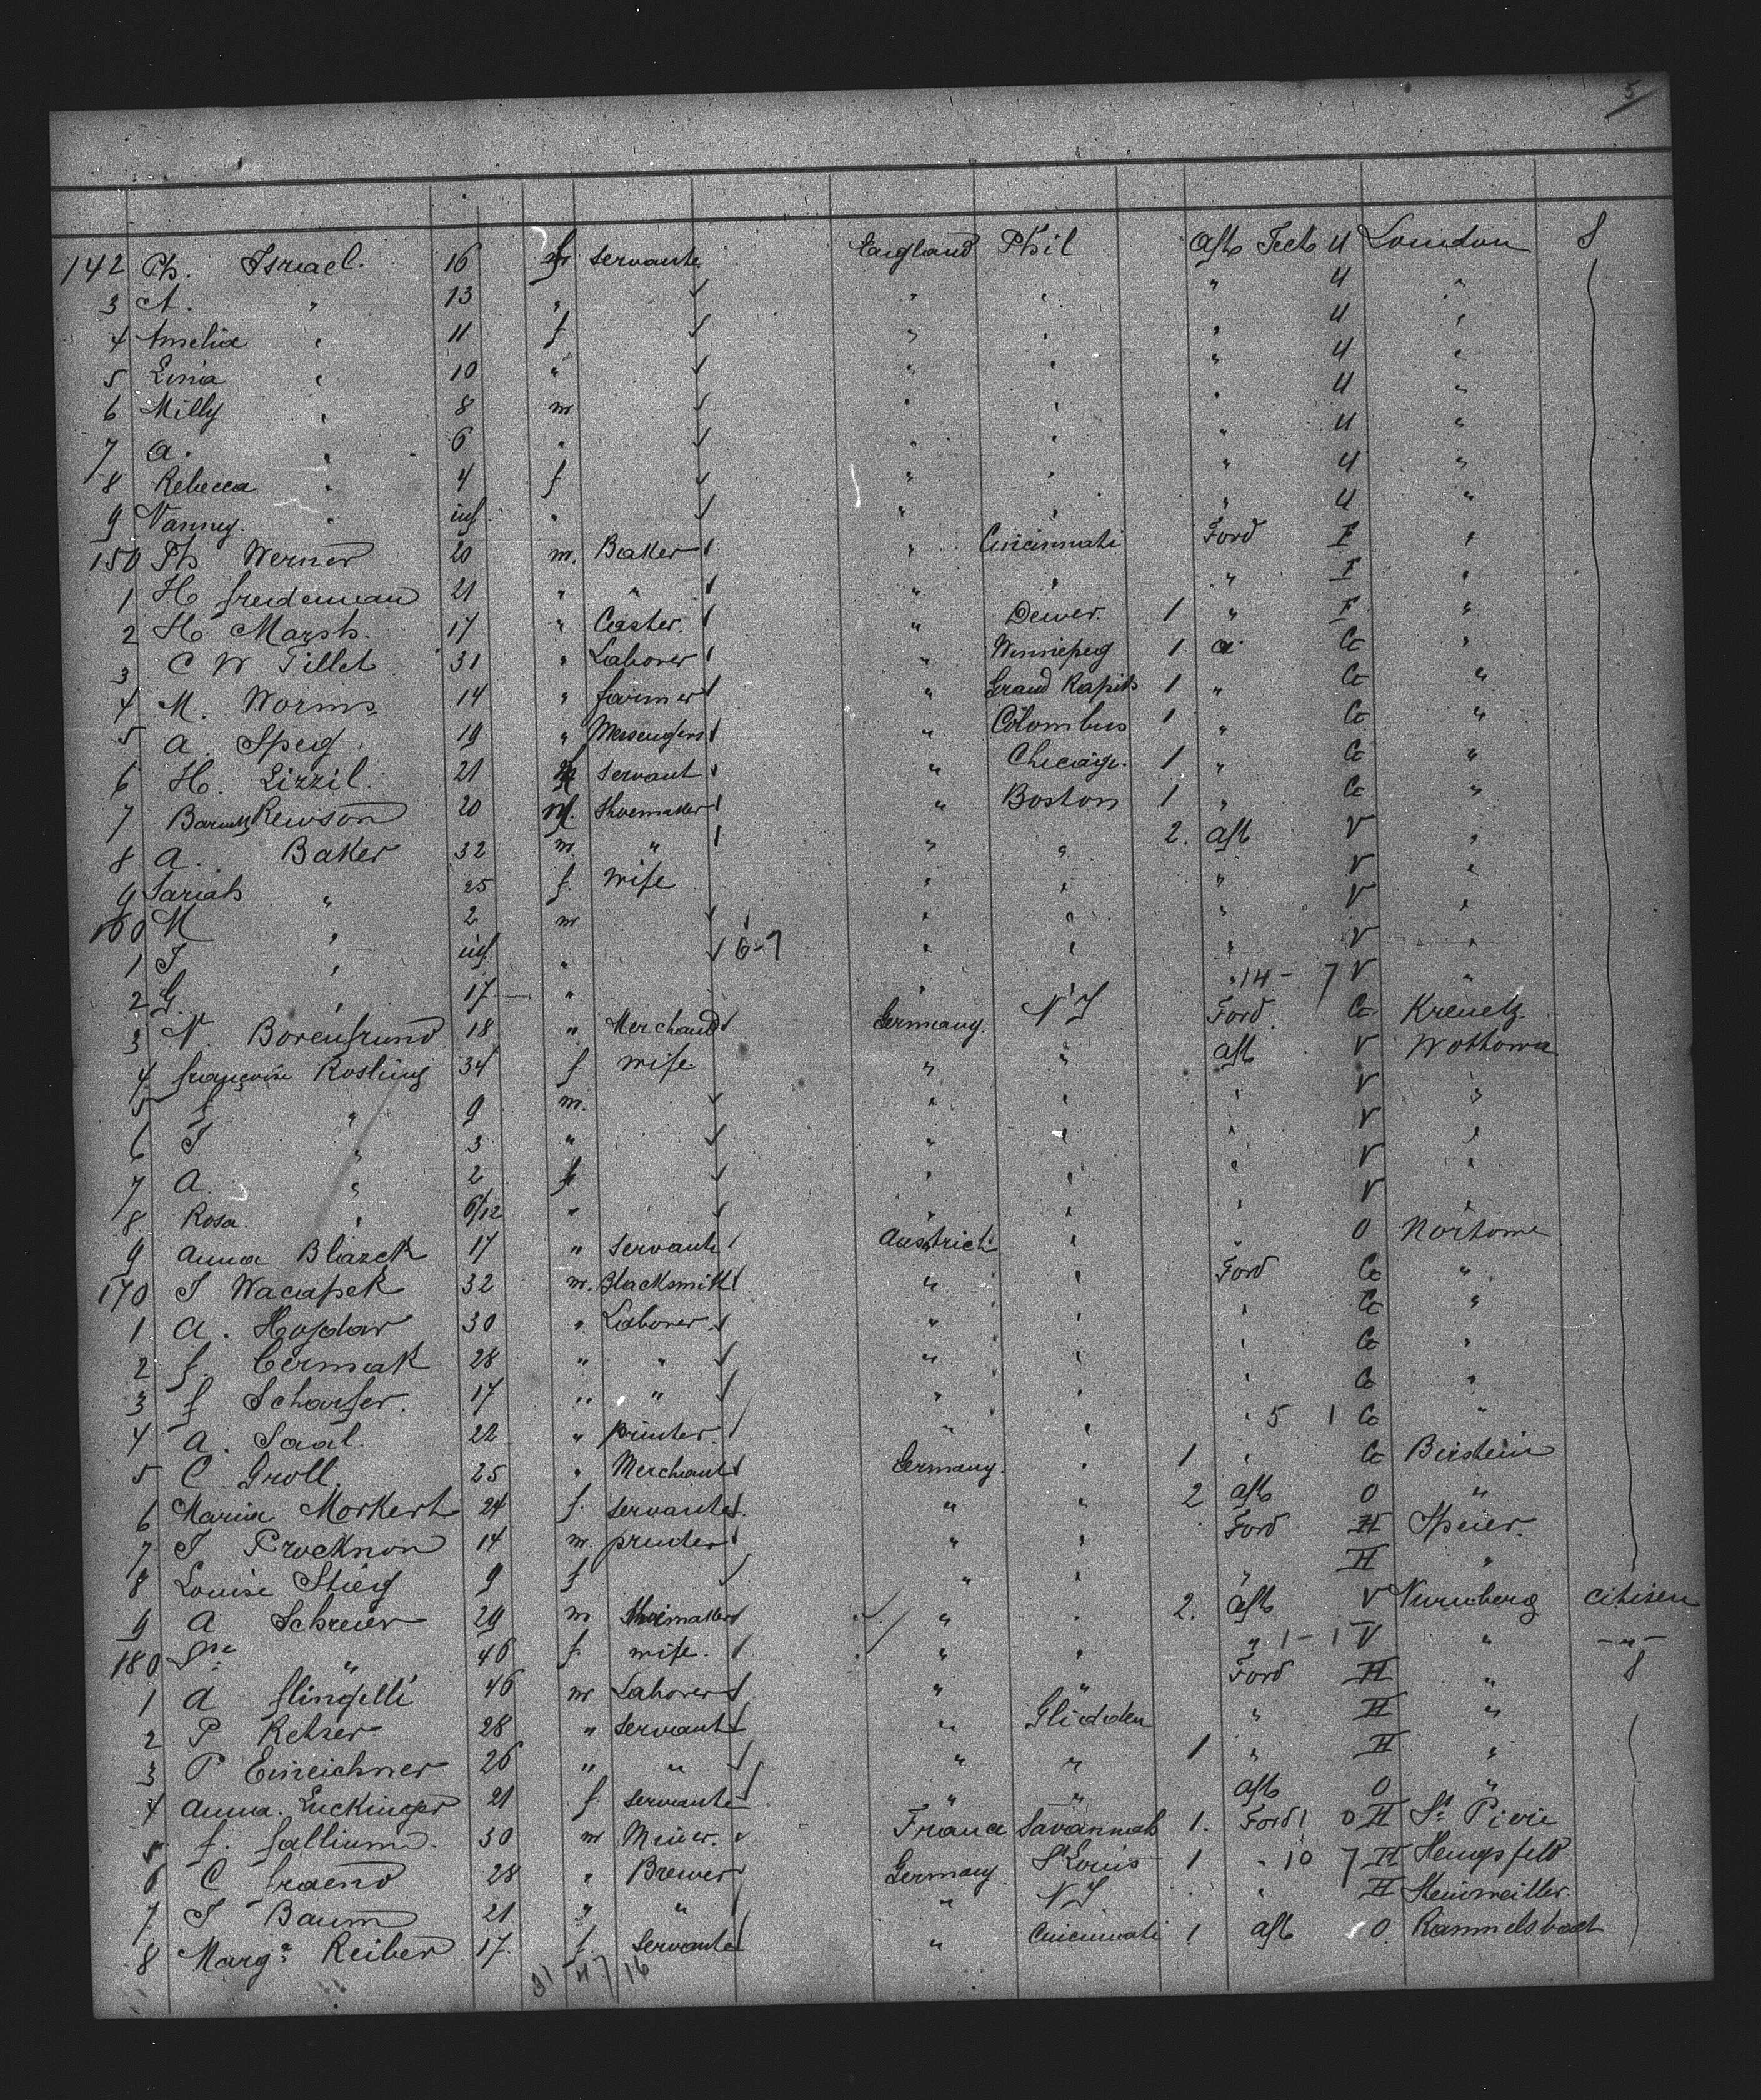 5
142 Ph. Israel. 16 f servante England Phil aft Teeb U London S
3 A. " 13 " " " " U "
4 Amelia " 11 f " " " U "
5 Lina " 10 " " " " U "
6 Milly " 8 m " " " U "
7 a. " 6 " " " " U "
8 Rebecca " 4 f " " " U "
9 Nanney. " inf. " " " " U "
150 Ph Werner 20 m. Baker " Cincinnati Ford F "
1 H freudeman 21 " " " " " F "
2 H Marsh. 17 " Caster. " Denver. 1 " F "
3 C W Tillet 31 " Laborer " Winnipeg 1 a. C "
4 M. Worms 14 " farmer " Grand Rapids 1 " C "
5 a. Speig. 19 " Messengers " Colombus 1 " C "
6 H. Lizzil. 21 m servant " Chicago. 1 " C "
7 Baruch Rewson 20 M. Shoemaker " Boston 1 " C "
8 a. Baker 32 m. " " " 2. aft V "
9 Sariah " 25 f. wife " " " V "
160 M " 2 m " " " V "
1 J " inf. " 6-7 " " " V "
2 G. " 17 " " " 14 - 7 V "
3 N. Borenfrund 18 " Merchand Germany. N Y Ford. C Kreuetz
4 françoise Rosling 34 f wife " " aft V Wottowa
5 f " 9 m. " " " V "
6 J " 3 " " " " V "
7 A. " 2 f " " " V "
8 Rosa. " 6/12 " " " " V "
9 anna Blazek 17 " servante Austrich " " O Nortowe
170 J Wacapek 32 m. Blacksmith " " Ford C "
1 a. Hojdar 30 " Laborer. " " " C "
2 f. Cermak 28 " " " " " C "
3 f Scharfer. 17 " " " " " C "
4 a. Saal. 22 " printer. " " " 5 1 C "
5 C Groll. 25 " Merchant Germany. " 1 " C Birstein
6 Maria Morkert 24 f. servante " " 2 aft O "
7 J Procknon 14 m. printer " " Ford H Speier.
8 Louise Stieg 9 f " " " H "
9 A Schreier 29 m Shoimaker " " 2. aft V Nurnberg citisen
180 " 46 f. wife. " " " 1 - 1 V " - " -
1 a flingelli 46 m Laborer " " Ford H " S
2 P Rehser 28 " servant " Glidden " H "
3 P Eineichner 26 " " " " 1 " H "
4 anna. Luckinger 21 f. servante " " aft O "
5 f. fallium. 30 m Miner. France Savannah 1. Ford 1 0 H St. Pierre
6 C fraend 28 " Brewer Germany St Louis 1 " 10 7 H Hengsfeld
7 J Baum 21 " " " N Y " H Steinweiller
8 Marga. Reiber 17. f servante " Cincinnati 1 aft O. Rammelsbach
31 47 16